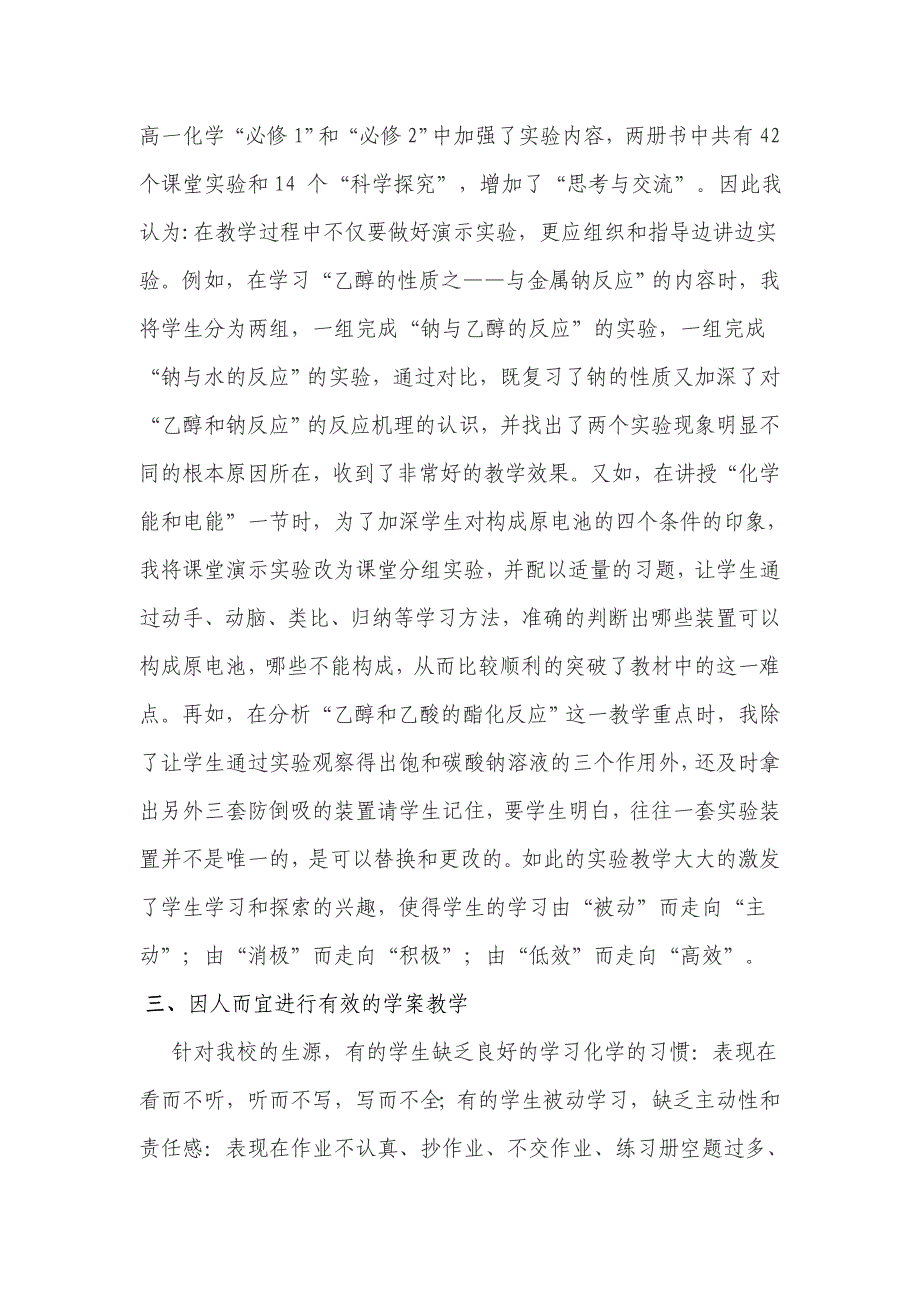 高一化学“必修1”和“必修2”中加强了实验内容，两册书中共有42
个课堂实验和14 个“科学探究”，增加了“思考与交流”。因此我
认为:在教学过程中不仅要做好演示实验，更应组织和指导边讲边实
验。例如，在学习“乙醇的性质之——与金属钠反应”的内容时，我
将学生分为两组，一组完成“钠与乙醇的反应”的实验，一组完成
“钠与水的反应”的实验，通过对比，既复习了钠的性质又加深了对
“乙醇和钠反应”的反应机理的认识，并找出了两个实验现象明显不
同的根本原因所在，收到了非常好的教学效果。又如，在讲授“化学
能和电能”一节时，为了加深学生对构成原电池的四个条件的印象，
我将课堂演示实验改为课堂分组实验，并配以适量的习题，让学生通
过动手、动脑、类比、归纳等学习方法，准确的判断出哪些装置可以
构成原电池，哪些不能构成，从而比较顺利的突破了教材中的这一难
点。再如，在分析“乙醇和乙酸的酯化反应”这一教学重点时，我除
了让学生通过实验观察得出饱和碳酸钠溶液的三个作用外，还及时拿
出另外三套防倒吸的装置请学生记住，要学生明白，往往一套实验装
置并不是唯一的，是可以替换和更改的。如此的实验教学大大的激发
了学生学习和探索的兴趣，使得学生的学习由“被动”而走向“主
动”；由“消极”而走向“积极”；由“低效”而走向“高效”。
三、因人而宜进行有效的学案教学
针对我校的生源，有的学生缺乏良好的学习化学的习惯：表现在
看而不听，听而不写，写而不全；有的学生被动学习，缺乏主动性和
责任感：表现在作业不认真、抄作业、不交作业、练习册空题过多、